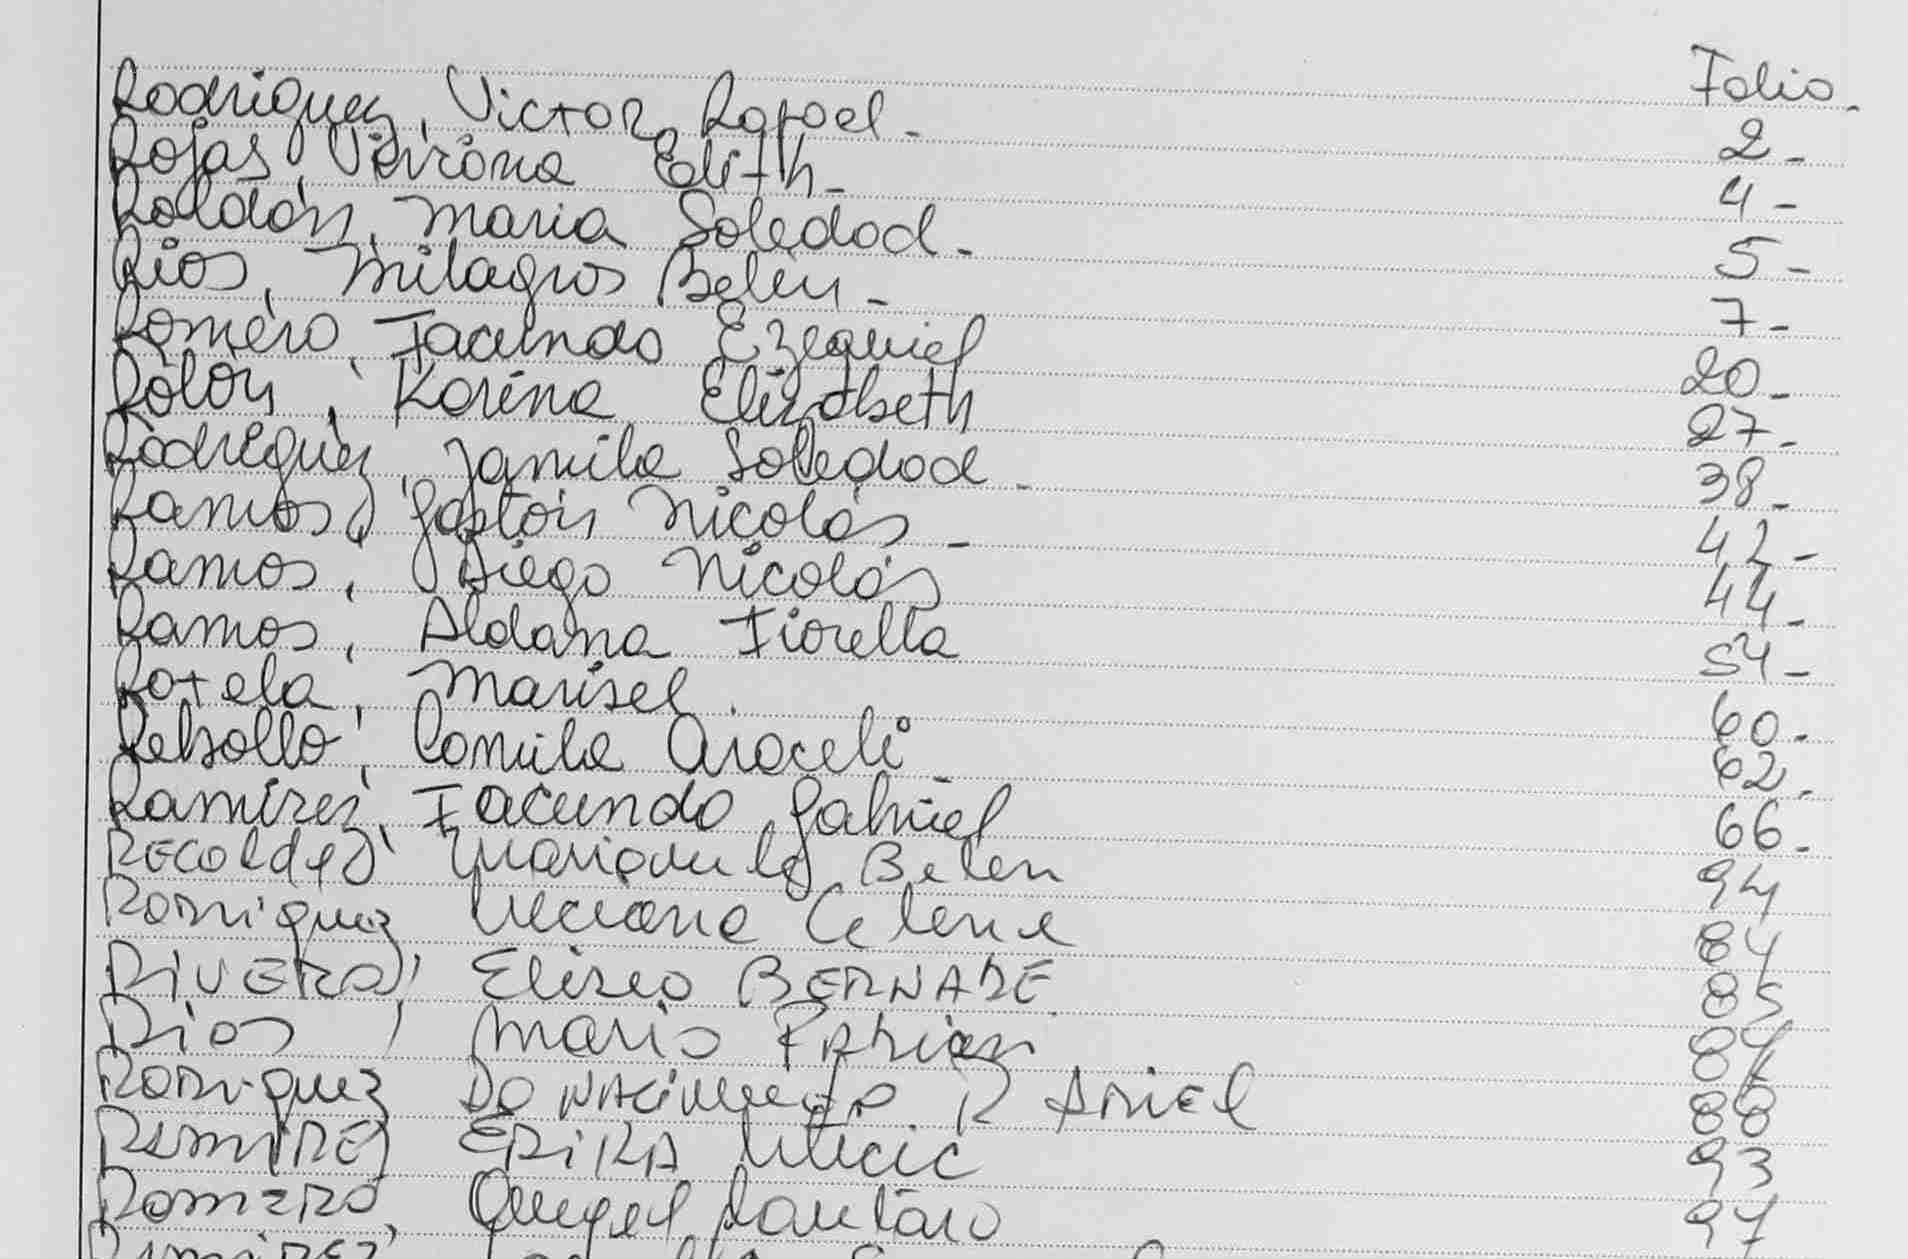 Folio.
Rodriguez, Victor Rafael. 2-
Rojas, Verióna Edith- 4-
Roldán, Maria Soledad- 5-
Rios, Milagros Belén- 7-
Romero, Facundo Ezequiel 20-
Rolón, Karina Elizabeth 27-
Rodriguez, Jamila Soledad- 38-
Ramos, Gastón Nicolás- 42-
Ramos, Diego Nicolás 44-
Ramos, Aldana Fiorella 54-
Rotela, Marisel. 60-
Rebollo, Camila Araceli- 62-
Ramírez, Facundo Gabriel 66-
Belen 94
Rodriguez Luciana Celene 84
RIVERO, Eliseo BERNABE 85
Rios, Mario Fabian
Rodriguez Do Nacimento R ARIEL 88
RAMIREZ ERIKA 93
ROMERO, Angel Lautaro 97